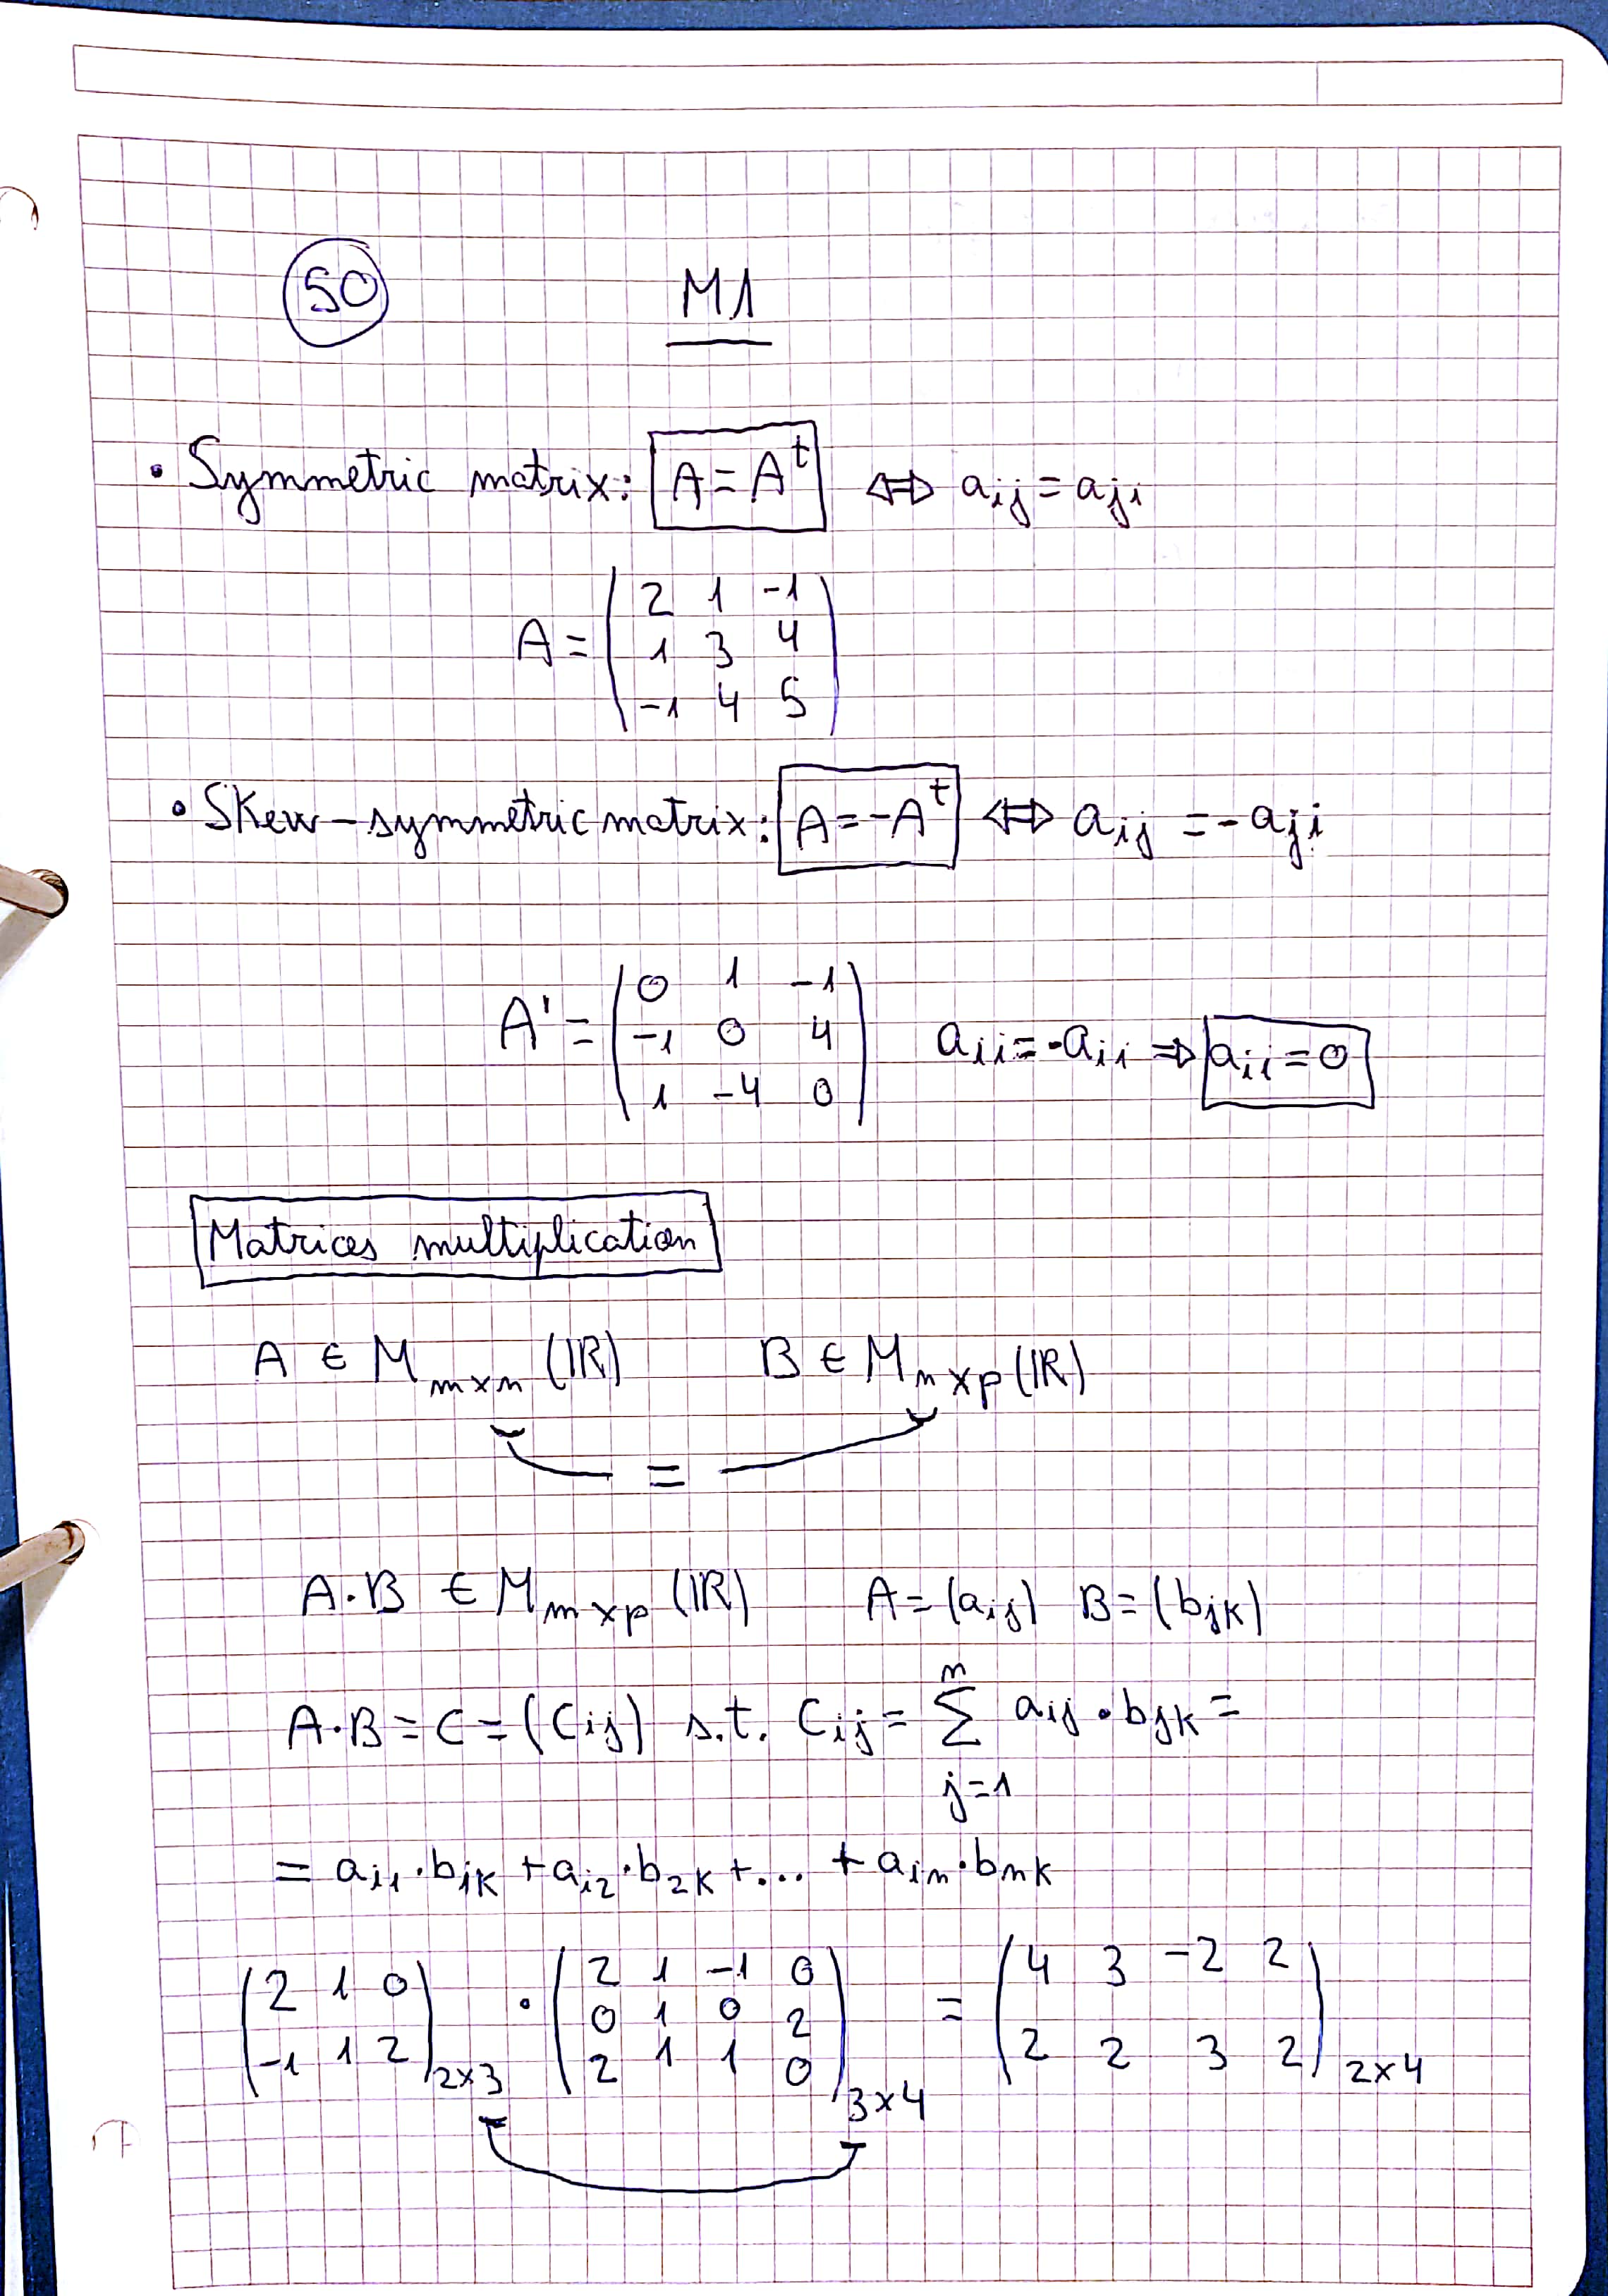 50 M1
• Symmetric matrix: A = Aᵗ ⇔ aij = aji
A = ( 2 1 -1
1 3 4
-1 4 5 )
• Skew-symmetric matrix: A = -Aᵗ ⇔ aij = -aji
A' = ( 0 1 -1
-1 0 4
1 -4 0 ) aii = -aii ⇒ aii = 0
Matrices multiplication
A ∈ Mm×n (ℝ) B ∈ Mn×p (ℝ)
=
A·B ∈ Mm×p (ℝ) A = (aij) B = (bjk)
A·B = C = (Cij) s.t. Cij = Σ_{j=1}^{n} aij · bjk =
= ai1·b1k + ai2·b2k + ... + ain·bnk
( 2 1 0
-1 1 2 )2×3 · ( 2 1 -1 0
0 1 0 2
2 1 1 0 )3×4 = ( 4 3 -2 2
2 2 3 2 )2×4